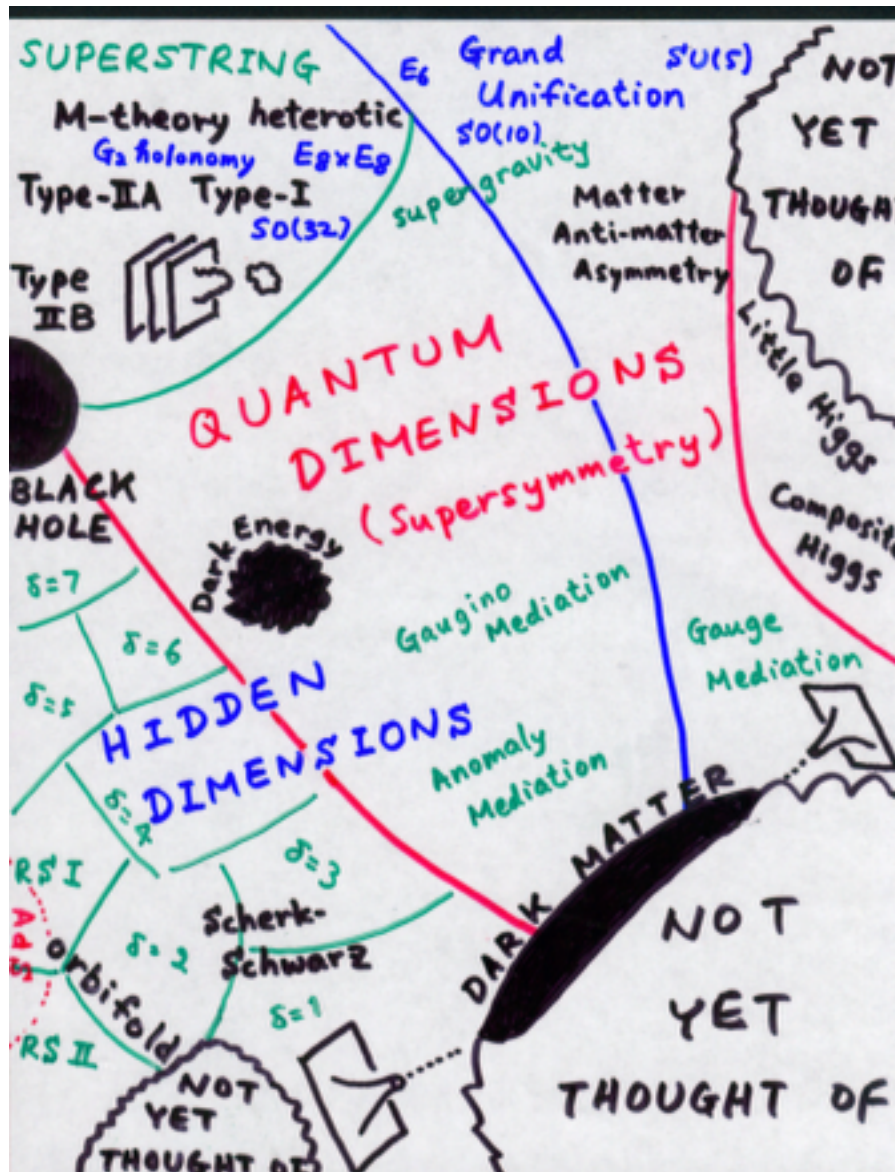 SUPERSTRING
M-theory heterotic
G₂ holonomy E8xE8
Type-IIA Type-I
SO(32)
Type
IIB
E6
Grand
Unification
SU(5)
SO(10)
supergravity
Matter
Anti-matter
Asymmetry
NOT
YET
THOUGHT
OF
Little Higgs
Composite
Higgs
QUANTUM
DIMENSIONS
(Supersymmetry)
BLACK
HOLE
Dark Energy
Gaugino
Mediation
Gauge
Mediation
Anomaly
Mediation
δ=7
δ=6
δ=5
HIDDEN
DIMENSIONS
δ=4
δ=3
RS I
AdS
orbifold
δ=2
Scherk-
Schwarz
δ=1
RS II
DARK MATTER
NOT
YET
THOUGHT OF
NOT
YET
THOUGHT OF